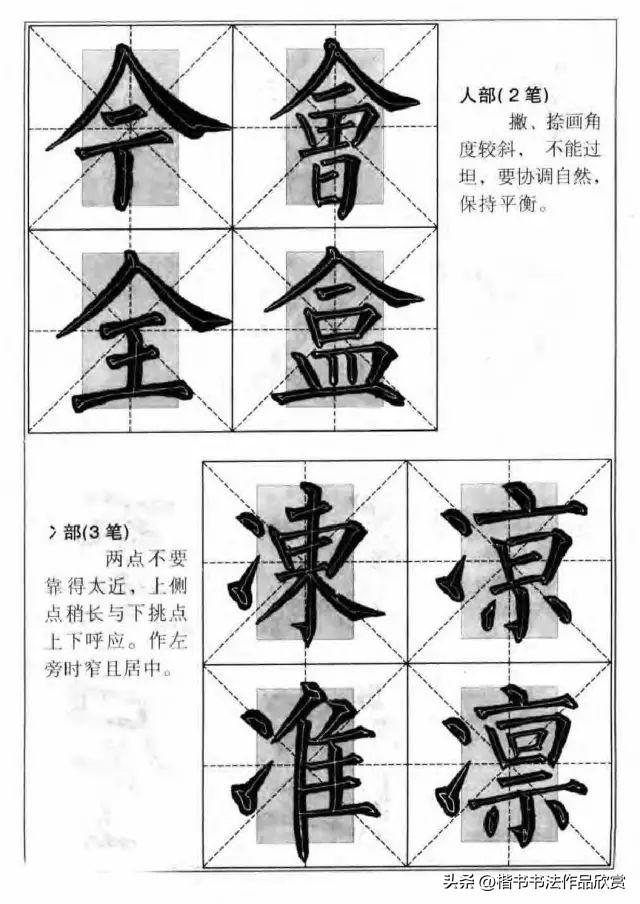 今 會
人部( 2 笔)
撇、捺画角
度较斜， 不能过
坦，要协调自然，
保持平衡。
全 盒
冫部(3 笔)
两点不要
靠得太近，上侧
点稍长与下挑点
上下呼应。作左
旁时窄且居中。
凍 凉
准 凛
头条 @楷书书法作品欣赏